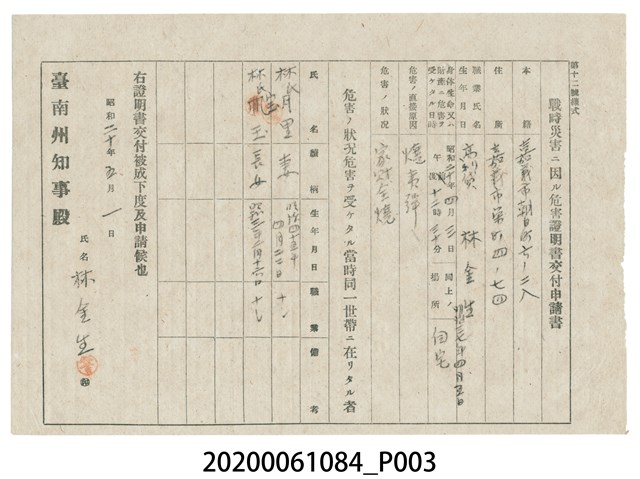 第十二號樣式
戰時災害ニ因ル危害證明書交付申請書
本籍 嘉義市朝日町六ノ二八
住所 嘉義市榮町四ノ七四
職業氏名 林金生
生年月日 年四月五日
身体生命又ハ財產ニ危害ヲ受ケタル日時 昭和二十年四月三日 午後十二時三十分 同上ノ場所 自宅
危害ノ直接原因 燒夷彈
危害ノ狀況 家財全燒
危害ノ狀況危害ヲ受ケタル當時同一世帶ニ在リタル者
氏名 續柄 生年月日 職業 備考
林氏月里 妻 明治四十五年四月二二日 ナシ
林氏 玉 長女 ナシ
右證明書交付被成下度及申請候也
昭和二十年五月一日
氏名 林金生
臺南州知事殿
20200061084_P003